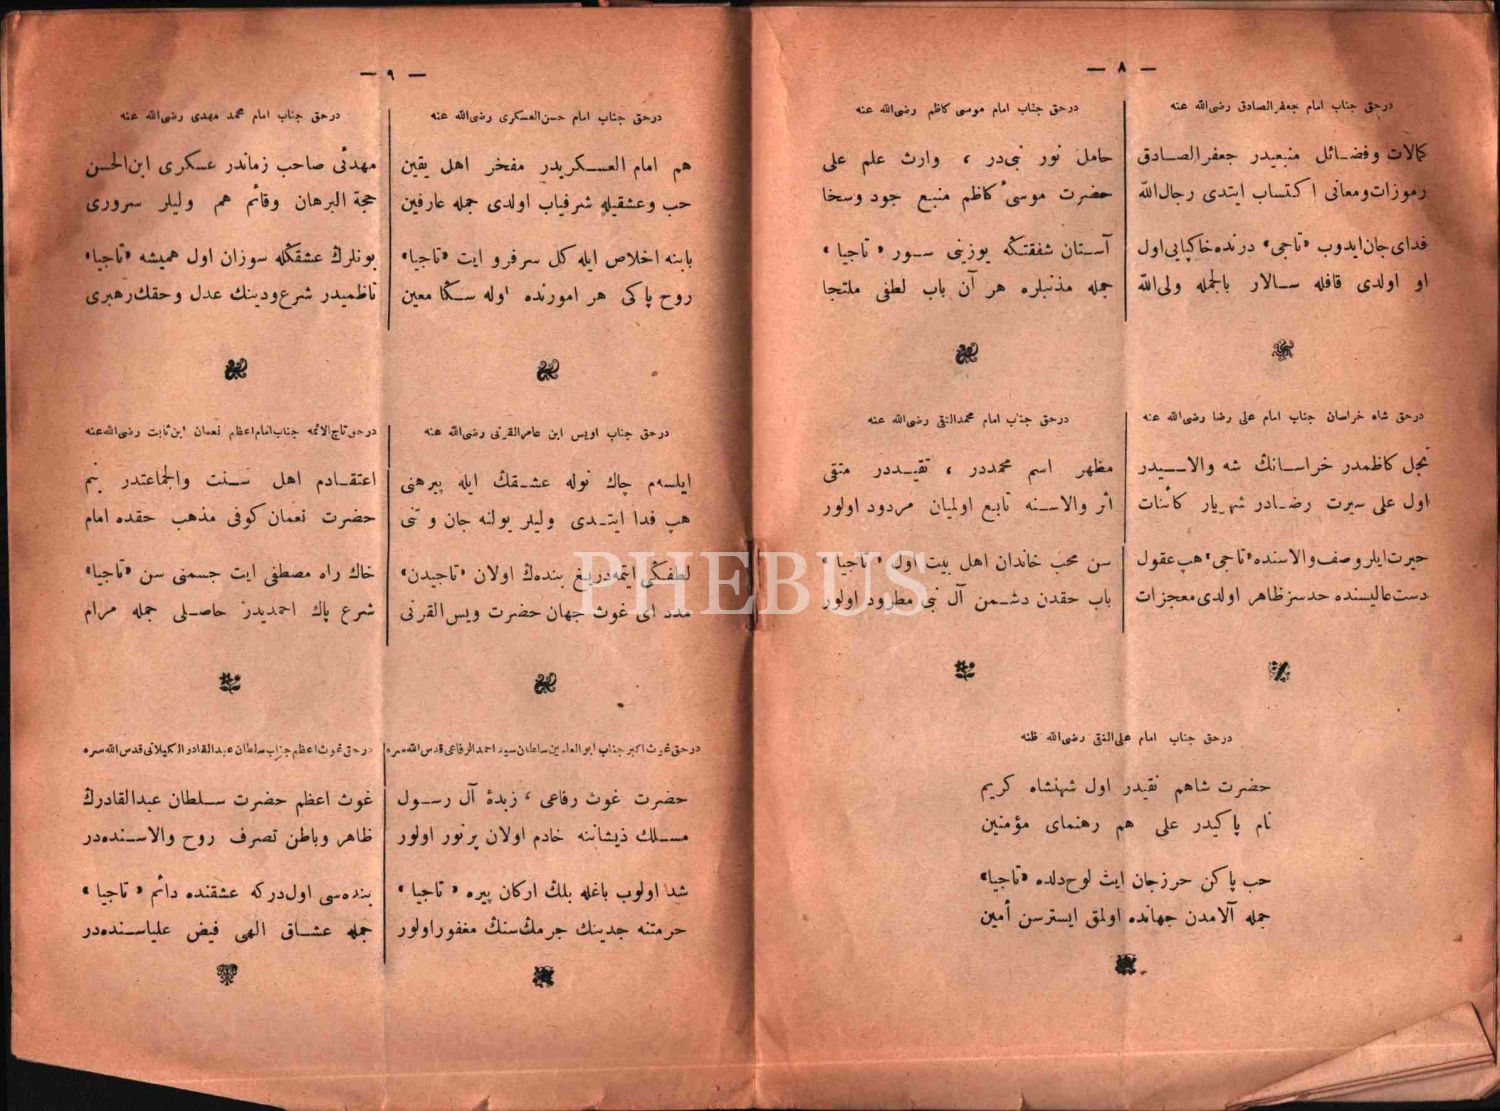 — ٨ —
درحق جناب امام جعفرالصادق رضی‌الله عنه
كمالات وفضائل منبعيدر جعفرالصادق
رموزات ومعانی اكتساب ايتدی رجال‌الله
فدای جان ايدوب «تاجی» درنده خاكپايی اول
او اولدی قافله سالار بالجمله ولی‌الله
درحق جناب امام موسی كاظم رضی‌الله عنه
حامل نور نبی‌در ، وارث علم علی
حضرت موسیٔ كاظم منبع جود وسخا
آستان شفقتكه يوزينی سور «تاجيا»
جمله مذنبلره هر آن باب لطفی ملتجا
درحق شاه خراسان جناب امام علی رضا رضی‌الله عنه
نجل كاظمدر خراسانڭ شه والاسيدر
اول علی سيرت رضادر شهريار كائنات
حيرت ايلر وصف والاسنده «تاجی» هپ عقول
دست عاليسنده حدسز ظاهر اولدی معجزات
درحق جناب امام محمدالتقی رضی‌الله عنه
مظهر اسم محمددر ، تقيددر متقی
اثر والاسنه تابع اولميان مردود اولور
سن محب خاندان اهل بيت اول «تاجيا»
باب حقدن دشمن آل نبی مطرود اولور
درحق جناب امام علی‌النقی رضی‌الله عنه
حضرت شاهم نقيدر اول شهنشاه كريم
نام پاكيدر علی هم رهنمای مؤمنين
حب پاكن حرزجان ايت لوح دلده «تاجيا»
جمله آلامدن جهانده اولمق ايسترسن أمين
— ٩ —
درحق جناب امام حسن‌العسكری رضی‌الله عنه
هم امام العسكريدر مفخر اهل يقين
حب وعشقيله شرفياب اولدی جمله عارفين
بابنه اخلاص ايله كل سرفرو ايت «تاجيا»
روح پاكی هر امورنده اوله سكا معين
درحق جناب امام محمد مهدی رضی‌الله عنه
مهدئی صاحب زماندر عسكری ابن‌الحسن
حجة البرهان وقائم هم وليلر سروری
بونلرڭ عشقڭله سوزان اول هميشه «تاجيا»
ناظميدر شرع ودينڭ عدل وحقك رهبری
درحق جناب اويس ابن عامرالقرنی رضی‌الله عنه
ايلسه‌م چاك نوله عشقڭ ايله پيرهنی
هپ فدا ايتدی وليلر يولنه جان و تنی
لطفكی ايتمه دريغ بنده‌ڭ اولان «تاجيدن»
مدد ای غوث جهان حضرت ويس القرنی
درحق تاج الائمه جناب امام اعظم نعمان ابن ثابت رضی‌الله عنه
اعتقادم اهل سنت والجماعتدر بنم
حضرت نعمان كوفی مذهب حقده امام
خاك راه مصطفی ايت جسمنی سن «تاجيا»
شرع پاك احمديدر حاصلی جمله مرام
درحق غوث اكبر جناب ابوالعلمين سلطان سيد احمدالرفاعی قدس‌الله سره
حضرت غوث رفاعی ، زبدۀ آل رسول
مسلك ذيشاننه خادم اولان پرنور اولور
شدا اولوب باغله بلڭ اركان پيره «تاجيا»
حرمتنه جدينڭ جرمڭ سنڭ مغفور اولور
درحق غوث اعظم جناب سلطان عبدالقادر الكيلانی قدس‌الله سره
غوث اعظم حضرت سلطان عبدالقادرڭ
ظاهر وباطن تصرف روح والاسنده‌در
بنده‌سی اول دركه عشقنده دائم «تاجيا»
جمله عشاق الهی فيض علياسنده‌در
PHEBUS